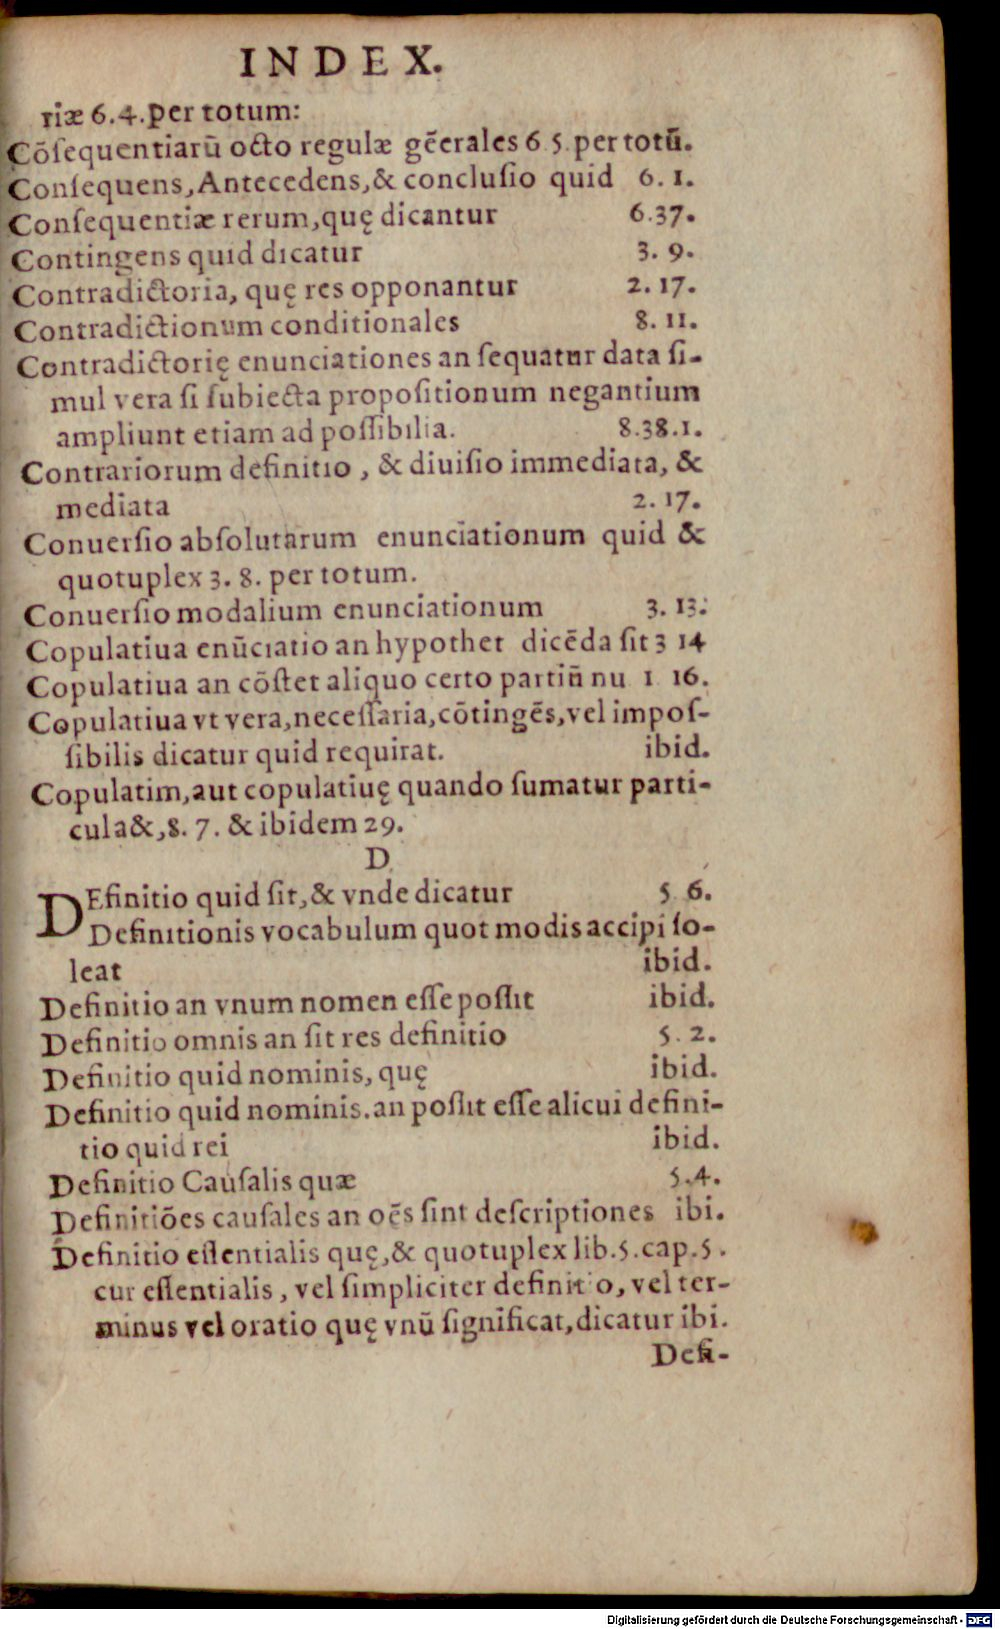 INDEX.
riæ 6.4.per totum:
Cõſequentiarũ octo regulæ gẽerales 6 5. per totũ.
Conſequens, Antecedens, & concluſio quid 6. 1.
Conſequentiæ rerum, quę dicantur 6.37.
Contingens quid dicatur 3. 9.
Contradictoria, quę res opponantur 2. 17.
Contradictionum conditionales 8. 11.
Contradictorię enunciationes an ſequatur data ſi-
mul vera ſi ſubiecta propoſitionum negantium
ampliunt etiam ad poſſibilia. 8.38.1.
Contrariorum definitio, & diuiſio immediata, &
mediata 2. 17.
Conuerſio abſolutarum enunciationum quid &
quotuplex 3. 8. per totum.
Conuerſio modalium enunciationum 3. 13.
Copulatiua enũciatio an hypothet dicẽda ſit 3 14
Copulatiua an cõſtet aliquo certo partiũ nu 1 16.
Copulatiua vt vera, neceſſaria, cõtingẽs, vel impoſ-
ſibilis dicatur quid requirat. ibid.
Copulatim, aut copulatiuę quando ſumatur parti-
cula &, 8. 7. & ibidem 29.
D
DEfinitio quid ſit, & vnde dicatur 5 6.
Definitionis vocabulum quot modis accipi ſo-
leat ibid.
Definitio an vnum nomen eſſe poſſit ibid.
Definitio omnis an ſit res definitio 5. 2.
Definitio quid nominis, quę ibid.
Definitio quid nominis. an poſſit eſſe alicui defini-
tio quid rei ibid.
Definitio Cauſalis quæ 5.4.
Definitiões cauſales an oẽs ſint deſcriptiones ibi.
Definitio eſſentialis quę, & quotuplex lib.5.cap.5.
cur eſſentialis, vel ſimpliciter definitio, vel ter-
minus vel oratio quę vnũ ſignificat, dicatur ibi.
Defi-
Digitalisierung gefördert durch die Deutsche Forschungsgemeinschaft - DFG